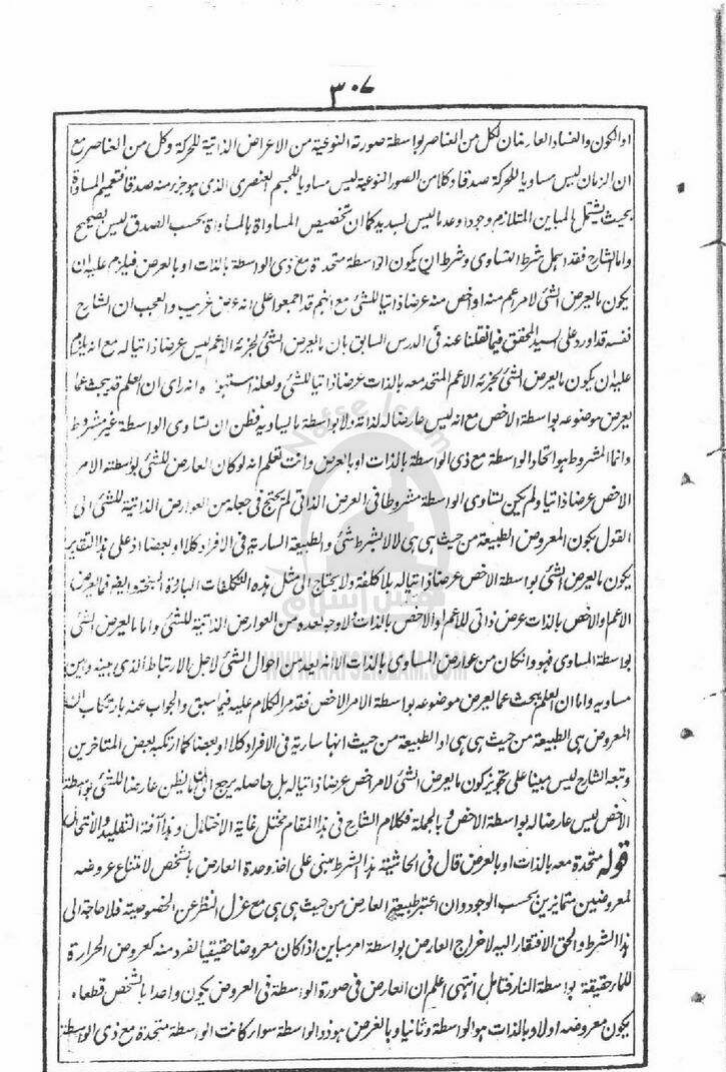 ٣٠٧
او الكون والفساد العارضان لكل من العناصر بواسطة صورته النوعية من الاعراض الذاتية للحركة وكل من العناصر مع
ان الزمان ليس مساويا للحركة صدقا وكلا من الصور النوعية ليس مساويا للجسم العنصرى الذى هو جزء منه صدقا فتعميم المساواة
بحيث يشتمل المباين المتلازم وجودا وعدما ليس بسديد كما ان تخصيص المساواة بالمساواة بحسب الصدق ليس بصحيح
واما الشارح فقد اهمل شرط التساوى وشرط ان يكون الواسطة متحدة مع ذى الواسطة بالذات او بالعرض فيلزم عليه ان
يكون ما يعرض الشئ لامر اعم منه او اخص منه عرضا ذاتيا للشئ مع انهم قد اجمعوا على انه عرض غريب والعجب ان الشارح
نفسه قد اورد على السيد المحقق فيما نقلنا عنه فى الدرس السابق بان ما يعرض الشئ لجزئه الاعم ليس عرضا ذاتيا له مع انه يلزم
عليه ان يكون ما يعرض الشئ لجزئه الاعم المتحد معه بالذات عرضا ذاتيا للشئ ولعله انه راى ان العلم قد يبحث عما
يعرض موضوعه بواسطة الاخص مع انه ليس عارضا له لذاته ولا بواسطة ما يساويه فظن ان تساوى الواسطة غير مشروط
وانما المشروط هو اتحاد الواسطة مع ذى الواسطة بالذات او بالعرض وانت تعلم انه لو كان العارض للشئ بواسطة الامر
الاخص عرضا ذاتيا ولم يكن تساوى الواسطة مشروطا فى العرض الذاتى لم يحتج فى جعله من العوارض الذاتية للشئ الى
القول بكون المعروض الطبيعة من حيث هى هى لا بشرط شئ والطبيعة السارية فى الافراد كلا او بعضا اذ على هذا التقدير
يكون ما يعرض الشئ بواسطة الاخص عرضا ذاتيا له بلا كلفة ولا يحتاج الى مثل هذه التكلفات الباردة فما يعرض
الاعم والاخص بالذات عرض ذاتى للاعم او الاخص بالذات ولا وجه لعده من العوارض الذاتية للشئ واما ما يعرض الشئ
بواسطة المساوى فهو وانكان من عوارض المساوى بالذات الا انه يعد من احوال الشئ لاجل الارتباط الذى بينه وبين
مساويه واما ان العلم يبحث عما يعرض موضوعه بواسطة الامر الاخص فقد مر الكلام عليه فيما سبق والجواب عنه بارتكاب ان
المعروض هى الطبيعة من حيث هى هى او الطبيعة من حيث انها سارية فى الافراد كلا او بعضا كما ارتكبه بعض المتاخرين
وتبعه الشارح ليس مبنيا على تجويز كون ما يعرض الشئ لامر اخص عرضا ذاتيا له بل حاصله يرجع الى ان ما يظن عارضا للشئ بواسطة
الاخص ليس عارضا له بواسطة الاخص وبالجملة فكلام الشارح فى هذا المقام مختل غاية الاختلال وهذا آفة التقليد والانتحال
قوله متحدة معه بالذات او بالعرض قال فى الحاشية هذا الشرط مبنى على اخذ وحدة العارض بالشخص لامتناع عروضه
لمعروضين متمايزين بحسب الوجود وان اعتبر طبيعة العارض من حيث هى هى مع عزل النظر عن الخصوصية فلا حاجة الى
هذا الشرط والحق الافتقار اليه لاخراج العارض بواسطة امر مباين اذا كان معروضا حقيقيا لفرد منه كعروض الحرارة
للماء حقيقة بواسطة النار فتامل انتهى اعلم ان العارض فى صورة الواسطة فى العروض يكون واحدا بالشخص قطعا و
يكون معروضه اولا وبالذات هو الواسطة وثانيا وبالعرض هو ذو الواسطة سواء كانت الواسطة متحدة مع ذى الواسطة